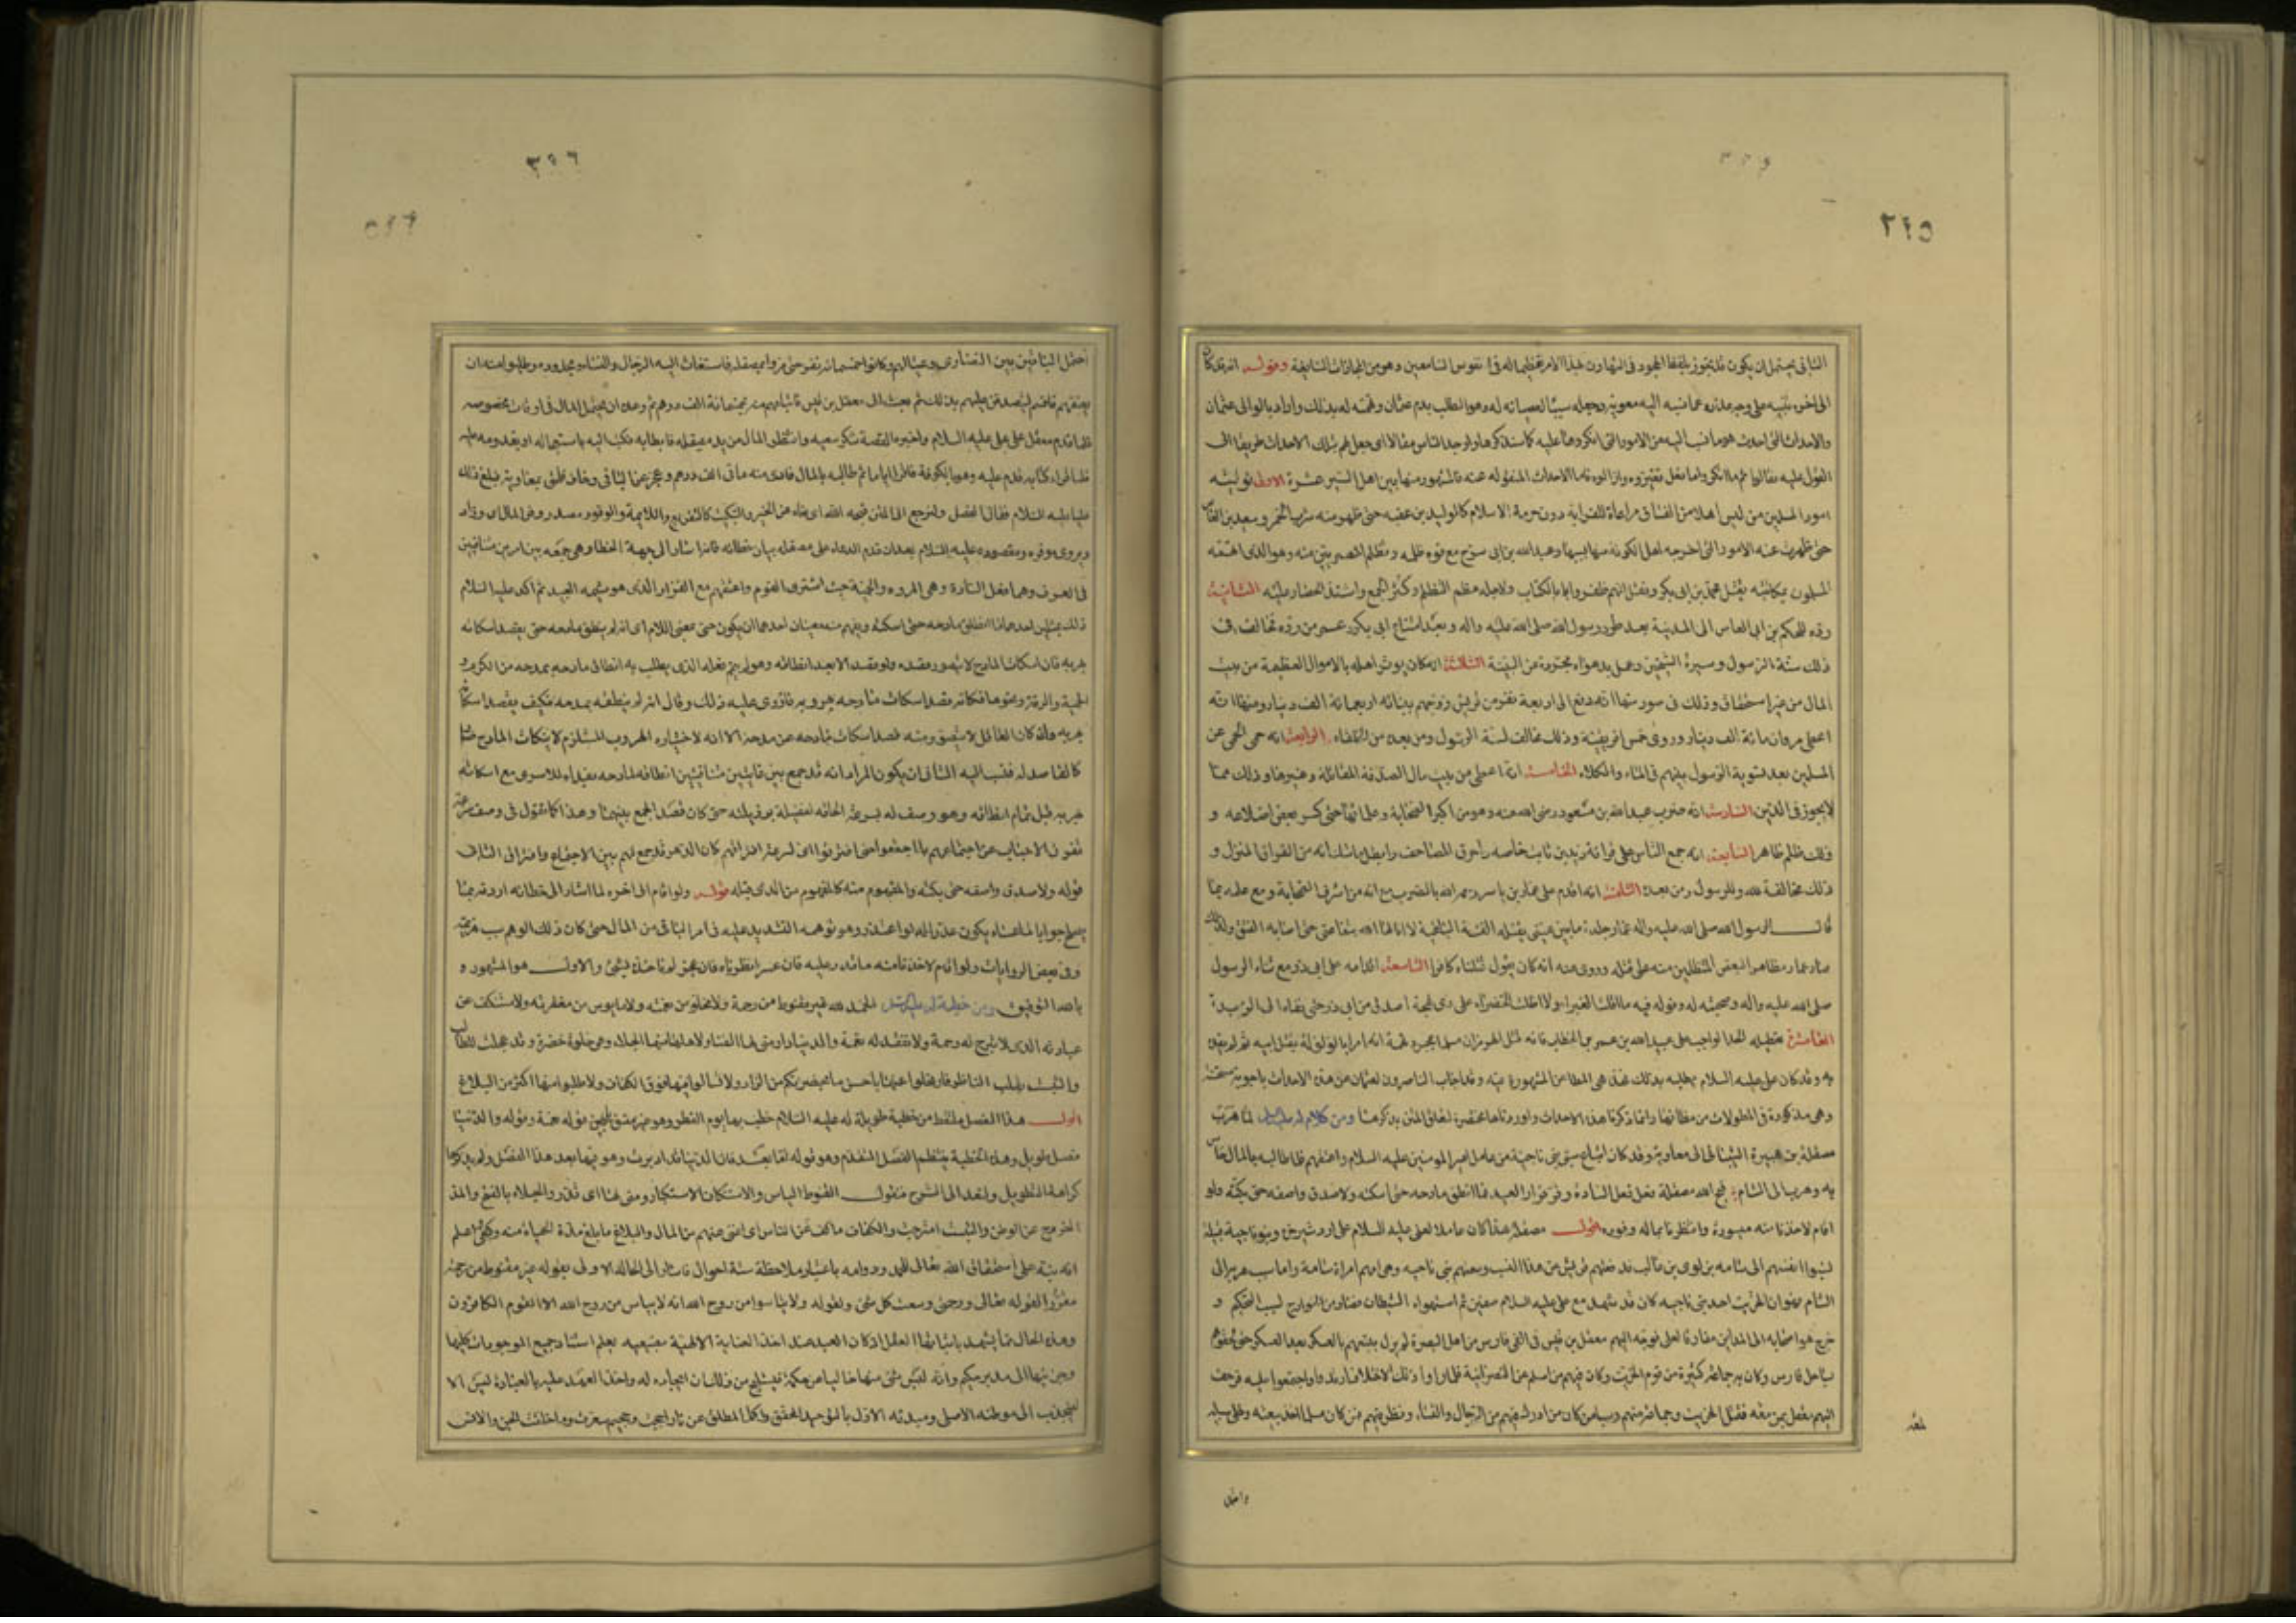 ٢٢٥
الثانى يحتمل ان يكون قد تجوز بلفظ الجحود فى التهاون بهذا الامر تعظيما له فى نفوس السامعين وهو من المجازات الشايعة وقوله انه قد كان
الى اخره تنبيه على وجه عذره عما نسبه اليه معوية وجعله سببا لعصيانه له وهو الطلب بدم عثمان وتهمته له بذلك واراد بالوالى عثمان
والاحداث التى احدث هو ما نسب اليه من الامور التى انكروها عليه كما سنذكرها واوجد الناس مقالا اى جعل لهم بتلك الاحداث طريقا الى
القول عليه فقالوا ثم انكروا ما فعل فغيروه وازالوه فاما الاحداث المنقولة عنه فالمشهور منها بين اهل السير عشرة الاولى توليته
امور المسلمين من ليس اهلا من الفساق مراعاة للقرابة دون حرمة الاسلام كالوليد بن عقبه حتى ظهر منه شرب الخمر وسعيد بن العاص
حتى ظهرت عنه الامور التى اخرجه اهل الكوفة منها بسببها وعبد الله بن ابى سرح مع قوة ظلمه وتظلم المصريين منه وهو الذى اتهمه
المسلمون بمكاتبته بقتل محمد بن ابى بكر ونقل انهم ظفروا بالكتاب ولاجله عظم التظلم وكثر الجمع واشتد الحصار عليه الثانية
رده للحكم بن ابى العاص الى المدينة بعد طرد رسول الله صلى الله عليه واله وبعد امتناع ابى بكر وعمر من رده فخالف فى
ذلك سنة الرسول وسيرة الشيخين وعمل بدعواه مجردة من البينة الثالثة انه كان يوثر اهله بالاموال العظيمة من بيت
المال من غير استحقاق وذلك فى صور منها انه دفع الى اربعة نفر من قريش زوجهم ببناته اربعمائة الف دينار ومنها انه
اعطى مروان مائة الف دينار وروى خمس افريقية وذلك مخالف لسنة الرسول ومن بعده من الخلفاء الرابعة انه حمى الحمى عن
المسلمين بعد تسوية الرسول بينهم فى الماء والكلاء الخامسة انه اعطى من بيت مال الصدقة المقاتلة وغيرها وذلك مما
لا يجوز فى الدين السادسة انه ضرب عبد الله بن مسعود رضى الله عنه وهو من اكبر الصحابة وعلمائها حتى كسر بعض اضلاعه و
ذلك ظلم ظاهر السابعة انه جمع الناس على قرائة زيد بن ثابت خاصه واحرق المصاحف وابطل ما شك انه من القران المنزل و
ذلك مخالفة لله وللرسول ومن بعده الثامنة انه اقدم على عمار بن ياسر رحمه الله بالضرب مع انه من اشرف الصحابة ومع علمه بما
قال الرسول الله صلى الله عليه واله عمار جلدة ما بين عينى يقتله الفئة الباغية لا انالها الله شفاعتى حتى اصابه الفتق ولذلك
صار عمار مظاهرا لبعض المتظلمين منه على قتله وروى عنه انه كان يقول قتلناه كافرا التاسعة اقدامه على ابى ذر مع ثناء الرسول
صلى الله عليه واله وصحبته له وقوله فيه ما اقلت الغبراء ولا اظلت الخضراء على ذى لهجة اصدق من ابى ذر حتى نفاه الى الربذة
العاشرة تعطيله الحد الواجب على عبيد الله بن عمر بن الخطاب فانه قتل الهرمزان مسلما بمجرد تهمة انه امر ابا لؤلؤة بقتل ابيه ثم لم يقده
به وقد كان على عليه السلام يطلبه بذلك فهذه هى المطاعن المشهورة فيه وقد اجاب الناصرون لعثمان عن هذه الاحداث باجوبة مستحسنة
وهى مذكورة فى المطولات من مظانها وانما ذكرنا هذه الاحداث واوردناها مختصرة لتعلق المتن بذكرها ومن كلام له عليه السلم لما هرب
مصقلة بن هبيرة الشيبانى الى معاوية وقد كان ابتاع سبى بنى ناجية من عامل امير المومنين عليه السلام واعتقهم فلما طالبه بالمال خاس
به وهرب الى الشام قبح الله مصقلة فعل فعل السادة وفر فرار العبيد فما انطق مادحه حتى اسكته ولا صدق واصفه حتى بكته ولو
اقام لاخذنا منه ميسوره وانتظرنا بماله وفوره اقول مصقلة هذا كان عاملا لعلى عليه السلام على اردشير خره وبنو ناجية قبيلة
نسبوا انفسهم الى سامه بن لوى بن غالب فدفعتهم قريش عن هذا النسب وسمتهم بنى ناجيه وهى امهم امراة سامة واما سبب هربه الى
الشام فهو ان الخريت احد بنى ناجيه كان قد شهد مع على عليه السلام صفين ثم استهواه الشيطان فصار من الخوارج بسبب التحكيم و
خرج هو واصحابه الى المداين مفارقا لعلى فوجه اليهم معقل بن قيس فى الفى فارس من اهل البصرة ولم يزل يتبعهم بالعسكر بعد العسكر حتى لحقوهم
بساحل فارس وكان به جماعة كثيرة من قوم الخريت وكان فيهم من اسلم عن النصرانية فلما راوا ذلك الاختلاف ارتدوا واجتمعوا عليه فزحف
اليهم معقل بمن معه فقتل الخريت وجماعة منهم وسبى من كان من ادرك فيهم من الرجال والنساء ونظر فيهم فمن كان مسلما اخذ بيعته وخلى سبيله
واحتمل
٣٢٦
احتمل الباقين من النصارى وعيالهم وكانوا خمسمائة نفر حتى مروا بمصقلة فاستغاث اليه الرجال والنساء ومجدوه وطلبوا منه ان
يعتقهم فاقسم ليتصدقن عليهم بذلك ثم بعث الى معقل بن قيس فابتاعهم منه بخمسمائة الف درهم ثم وعده ان يحمل المال فى اوقات مخصوصه
فلما قدم معقل على على عليه السلام واخبره القصة شكر سعيه وانتظر المال من يد مصقلة فابطا به فكتب اليه باستعجاله او بقدومه عليه
فلما قراء كتابه قدم عليه وهو بالكوفة فاقره اياما ثم طالبه بالمال فادى منه مائتى الف درهم وعجز عن الباقى وخاف فلحق بمعاوية فبلغ ذلك
عليا عليه السلام فقال الفصل ولنرجع الى المتن قبحه الله اى نحاه عن الخير والتبكيت كالتقريع واللايمة والوفور مصدر وفر المال اى زاد
ويروى موفوره ومقصوده عليه السلام بعد ان قدم الدعاء على مصقلة بيان خطائه فانه اشار الى جهة الخطاء وهى جمعه بين امرين متنافيين
فى العرف وهما فعل السادة وهى المروه والحمية حيث اشترى القوم واعتقهم مع الفرار الذى هو شيمه العبيد ثم اكد عليه السلام
ذلك بمثلين احدهما ما انطق مادحه حتى اسكته ويفهم منه معنيان احدهما ان يكون حتى بمعنى اللام اى انه لم ينطق مادحه حتى يقصد اسكاته
بهربه فان اسكات المادح لا يتصور قصده ولو قصد الا بعد انطاقه وهو لم يتم فعله الذى يطلب به انطاق مادحه بمدحه من الكرم و
الحمية والرقة ونحوها فكانه قصد اسكات مادحه بهروبه فازرى عليه ذلك وقال انه لم ينطقه بمدحه فكيف يقصد اسكاته
بهربه وان كان العاقل لا يتصور منه قصد اسكات مادحه عن مدحه الا انه لاختياره الهروب المستلزم لاسكات المادح صار
كالقاصد له فنسب اليه الثانى ان يكون المراد انه قد جمع بين غايتين متنافيتين انطاقه لمادحه بفداء الاسرى مع اسكاته
بهربه قبل تمام انطاقه وهو وصف له بسرعة الحاقه لفضيلة برذيلة حتى كان قصد الجمع بينهما وهذا كما تقول فى وصف سرعة
تفرق الاحباب عن اجتماعهم ما اجتمعوا حتى افترقوا اى لسرعة افتراقهم كان الدهر قد جمع لهم بين الاجتماع وافتراق الثانى
قوله ولا صدق واصفه حتى بكته والمفهوم منه كالمفهوم من الذى قبله قوله ولو اقام الى اخره لما اشار الى خطائه اردفه بما
يصلح جوابا لما عساه يكون عذرا له لو اعتذر وهو توهمه التشديد عليه فى امر الباقى من المال حتى كان ذلك الوهم سبب هربه
وفى بعض الروايات ولو اقام لاخذنا منه ما قدر عليه فان عسر انظرناه فان عجز لم ناخذه بشئ والاول هو المشهور و
بالله التوفيق ومن خطبة له عليه السلم الحمد لله غير مقنوط من رحمة ولا مخلو من نعمته ولا مايوس من مغفرته ولا مستنكف عن
عبادته الذى لا تبرح له رحمة ولا تفقد له نعمة والدنيا دار منى لها الفناء ولاهلها منها الجلاء وهى حلوة خضرة وقد عجلت للطالب
والتبست بقلب الناظر فارتحلوا عنها باحسن ما بحضرتكم من الزاد ولا تسالوا فيها فوق الكفاف ولا تطلبوا منها اكثر من البلاغ
اقول هذا الفصل ملتقط من خطبة طويلة له عليه السلام خطب بها يوم الفطر وهو غير متسق بين قوله نعمة وقوله والدنيا
فصل طويل وهذه الخطبة ينتظم الفصل المتقدم وهو قوله اما بعد فان الدنيا قد ادبرت وهو فيها بعد هذا الفصل ولم يذكرها
كراهة التطويل ولنعد الى الشرح فنقول القنوط الياس والاستنكاف الاستكبار ومنى لها اى قدر والجلاء بالفتح والمد
الخروج عن الوطن والتبست امتزجت والكفاف ما كف عن الناس اى اغنى عنهم من المال والبلاغ ما بلغ مدة الحياة منه وكفى اعلم
انه نبه على استحقاق الله تعالى للحمد ودوامه باعتبار ملاحظة ستة احوال فاشار الى الحالة الاولى بقوله غير مقنوط من رحمته
مقررا لقوله تعالى ورحمتى وسعت كل شئ ولقوله ولا تياسوا من روح الله انه لا يياس من روح الله الا القوم الكافرون
وهذه الحال مما يشهد باثباتها العقل اذ كان العبد عند اخذ العناية الالهية بضبعيه يعلم استناد جميع الموجودات كليها
وجزئيها الى مدبر حكيم وانه ليس شئ منها خاليا من حكمة فيستلمح من ذلك ان ايجاده له واخذ العهد عليه بالعبادة ليس الا
لينجذب الى موطنه الاصلى ومبدئه الاول بالتوحيد المحقق والكمال المطلق عن نار اججت وجحيم سعرت وما خلقت الجن والانس